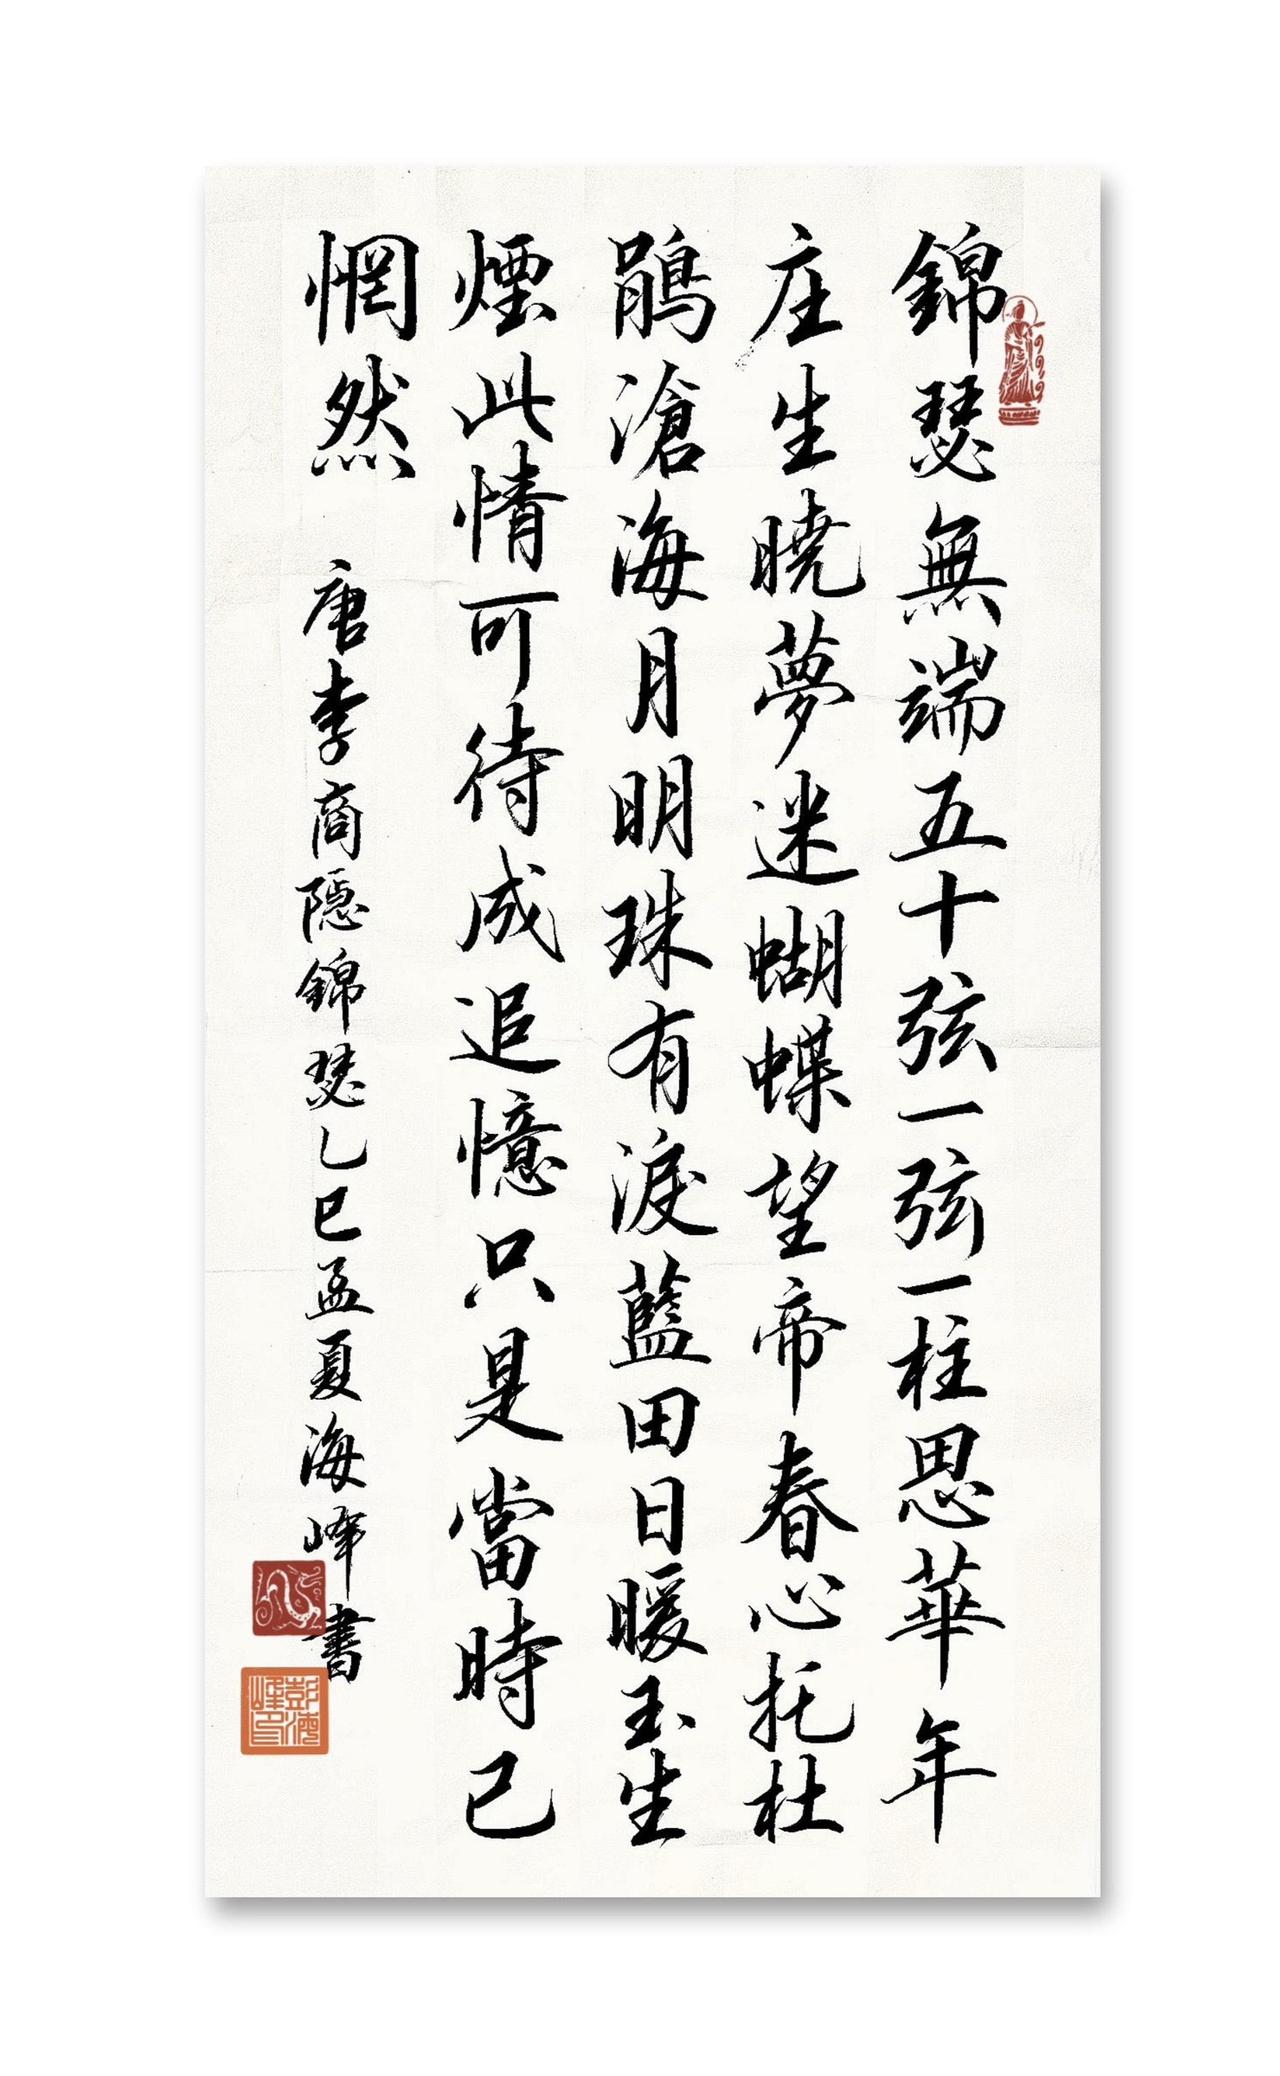 錦瑟無端五十弦一弦一柱思華年
庄生曉夢迷蝴蝶望帝春心托杜
鵑滄海月明珠有淚藍田日暖玉生
煙此情可待成追憶只是當時已
惘然
唐李商隱錦瑟乙巳孟夏海峰書
彭海峰印